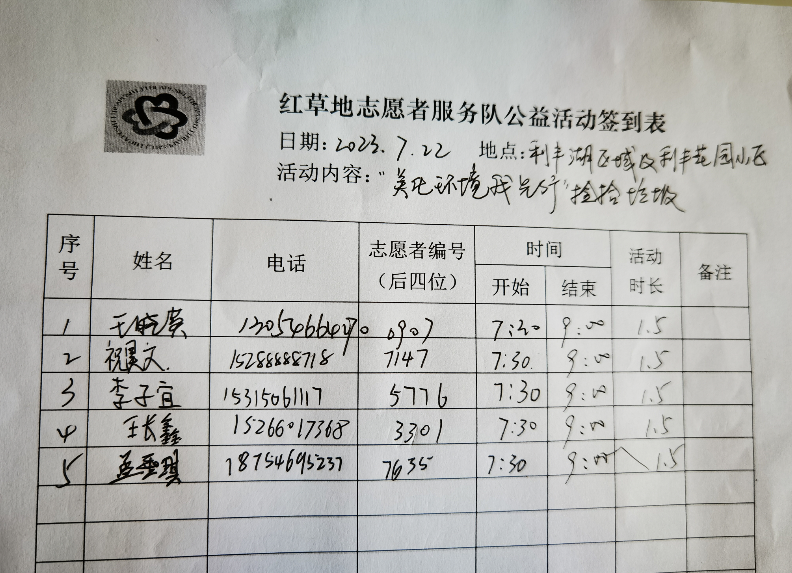 红草地志愿者服务队公益活动签到表
日期:2023.7.22 地点:利丰湖区域及利丰花园小区
活动内容:“美化环境我先行”捡拾垃圾
序号 姓名 电话 志愿者编号(后四位) 时间 开始 结束 活动时长 备注
1 王晓广 13054664470 0907 7:30 9:00 1.5
2 祝昊文. 15288888718 7147 7:30. 9:00 1.5
3 李子宜 15315061117 5776 7:30 9:00 1.5
4 王长鑫 15266017368 3301 7:30 9:00 1.5
5 18754695237 7635 7:30 9:00 1.5